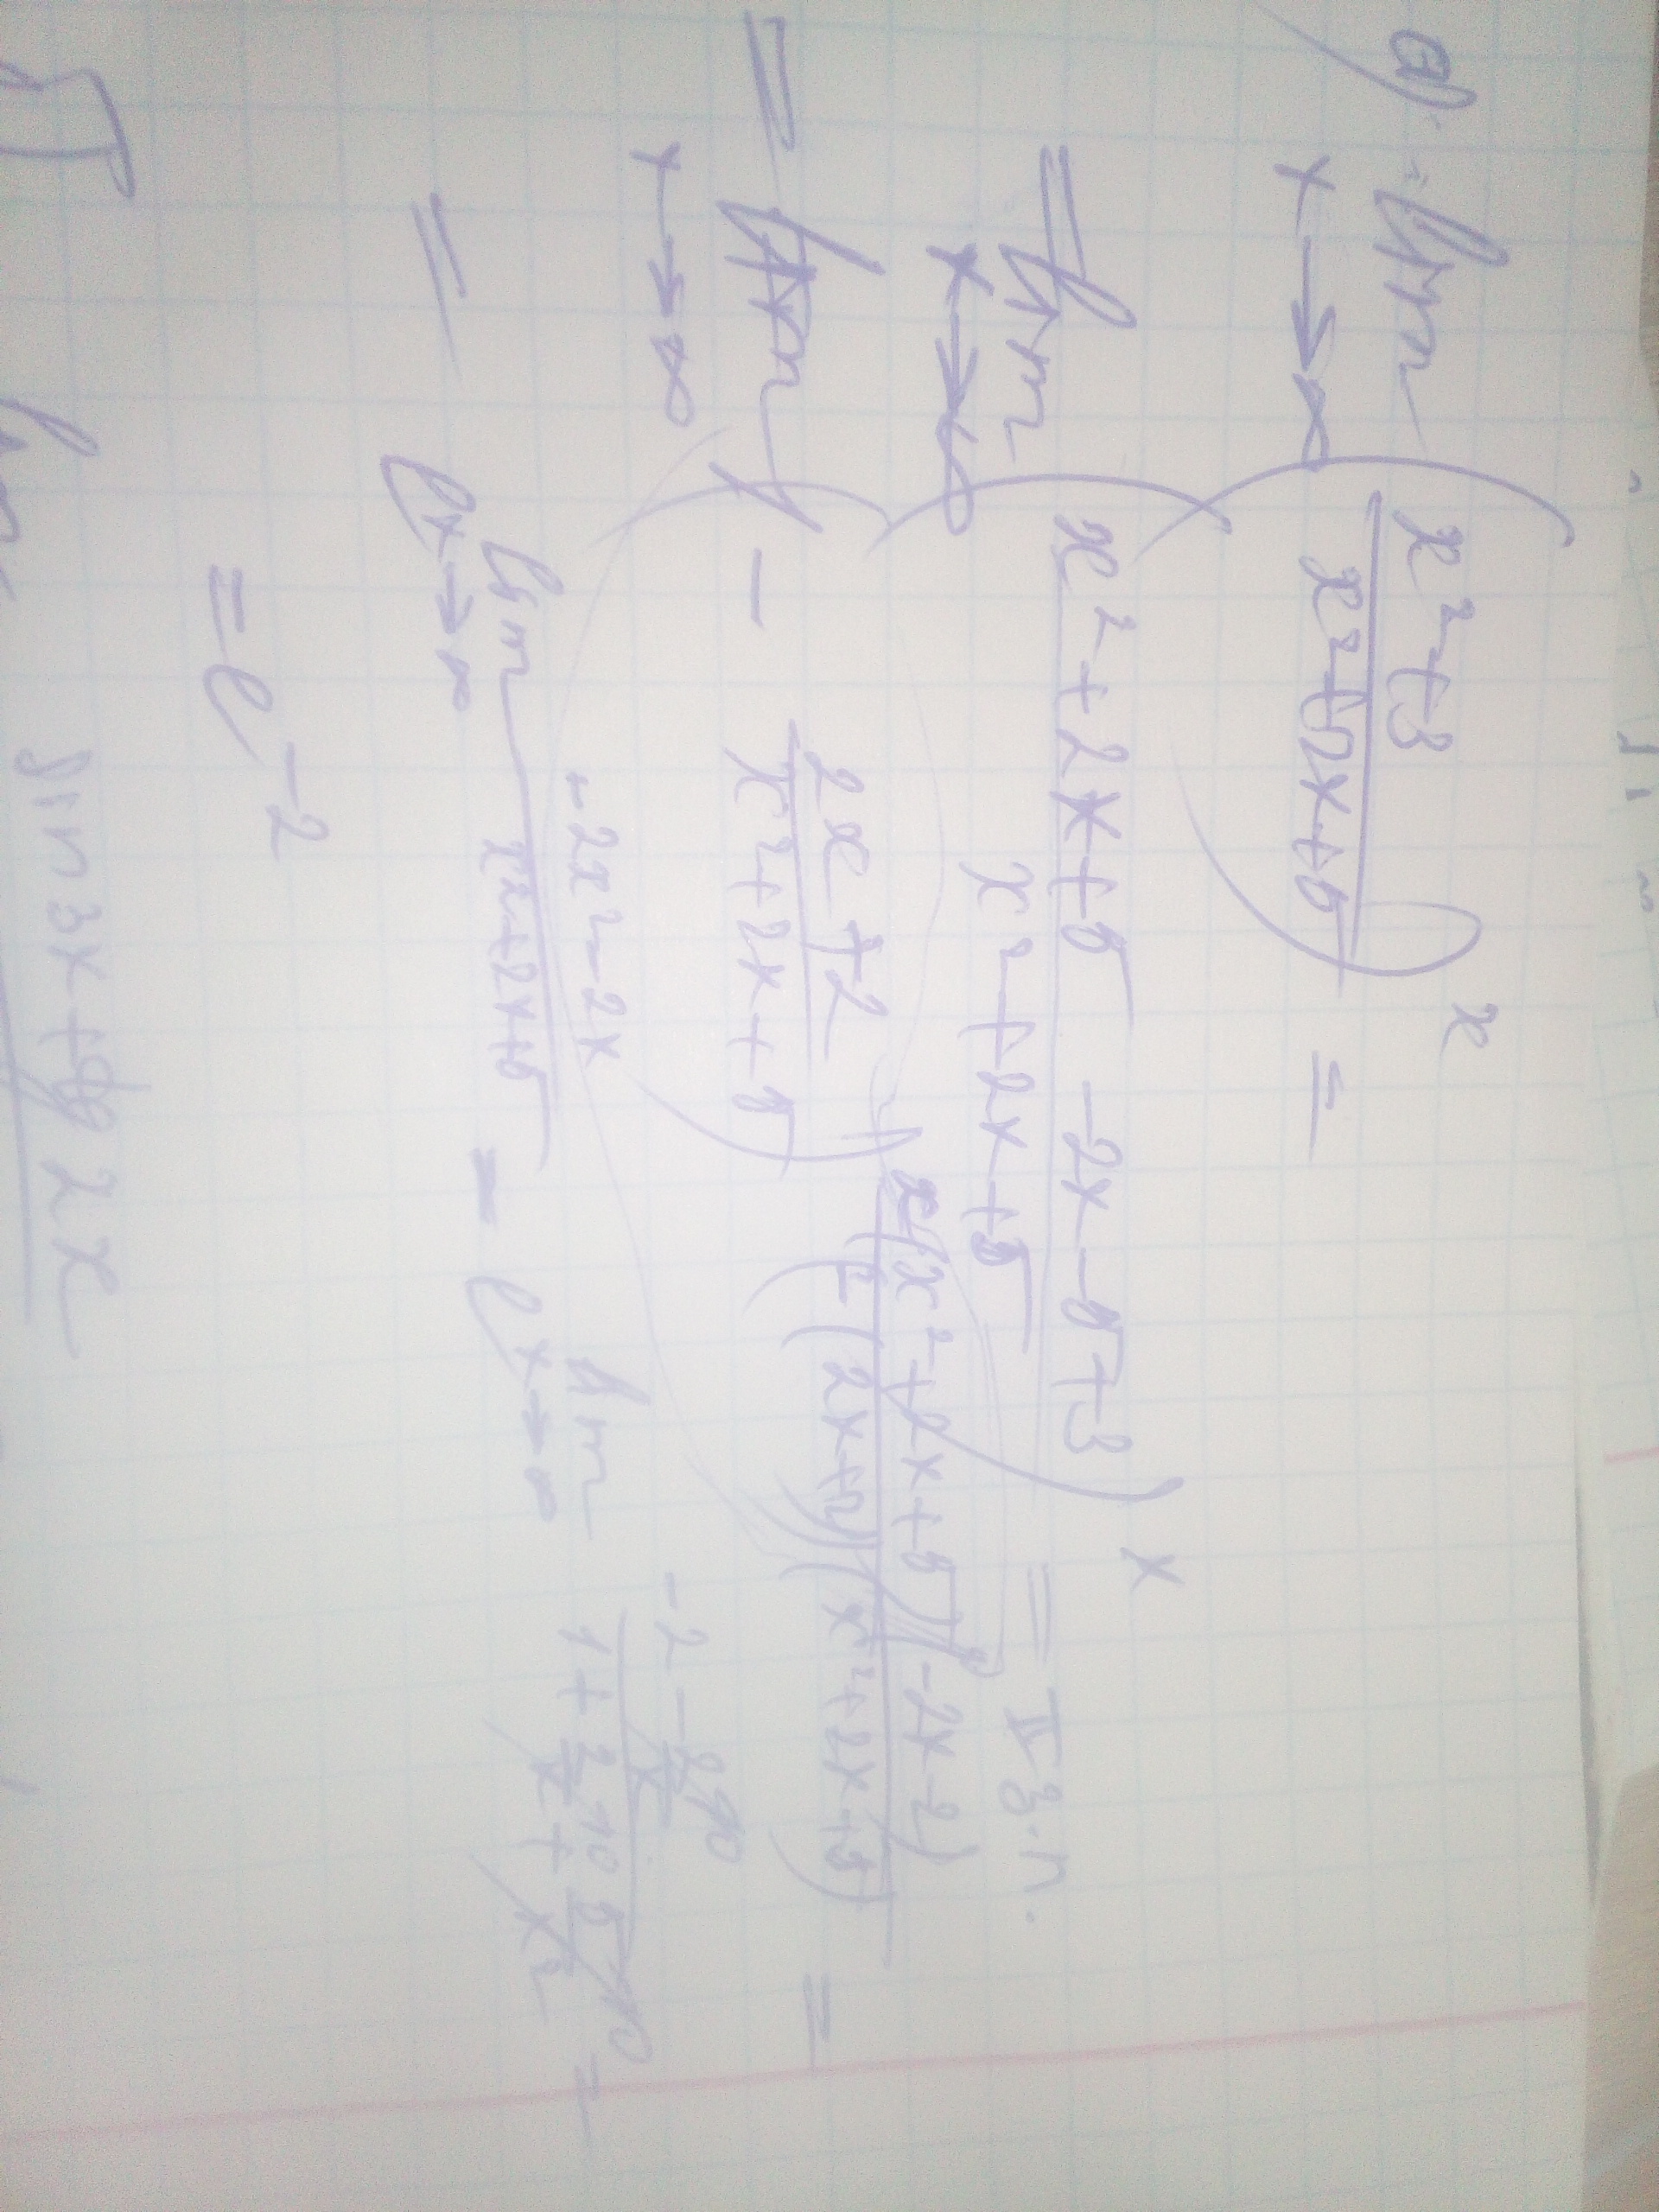 a) lim x→∞ (x²+3 / x²+2x+5)^x =
= lim x→∞ (x²+2x+5 -2x-5+3 / x²+2x+5)^x = II з.п.
= lim x→∞ (1 - 2x+2 / x²+2x+5)^ x(x²+2x+5)(-2x-2) / (2x+2)(x²+2x+5) =
= e^ lim x→∞ -2x²-2x / x²+2x+5 = e^ lim x→∞ -2 - 2/x →0 / 1 + 2/x →0 + 5/x² →0 =
= e^-2
sin 3x + tg 2x